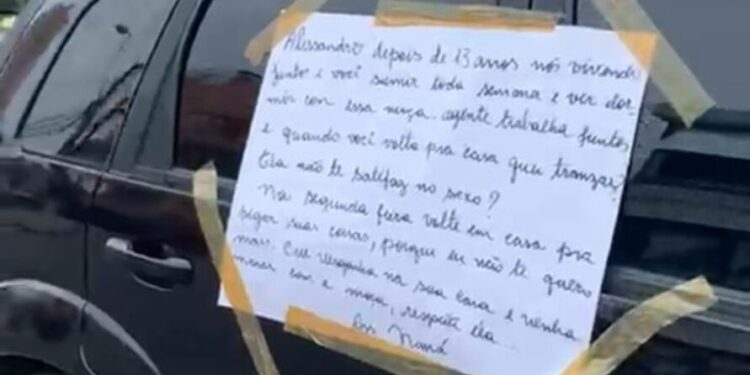 Alessandro depois de 13 anos nós vivendo
juntos e você sumir toda semana e ver dor
mir com essa moça. agente trabalha juntos
e quando você volta pra casa quer tranzar?
Ela não te satifaz no sexo?
Na segunda feira volte em casa pra
pegar suas coisas, porque eu não te quero
mais. Crie vergonha na sua cara e venha
morar com a moça, respeite ela...